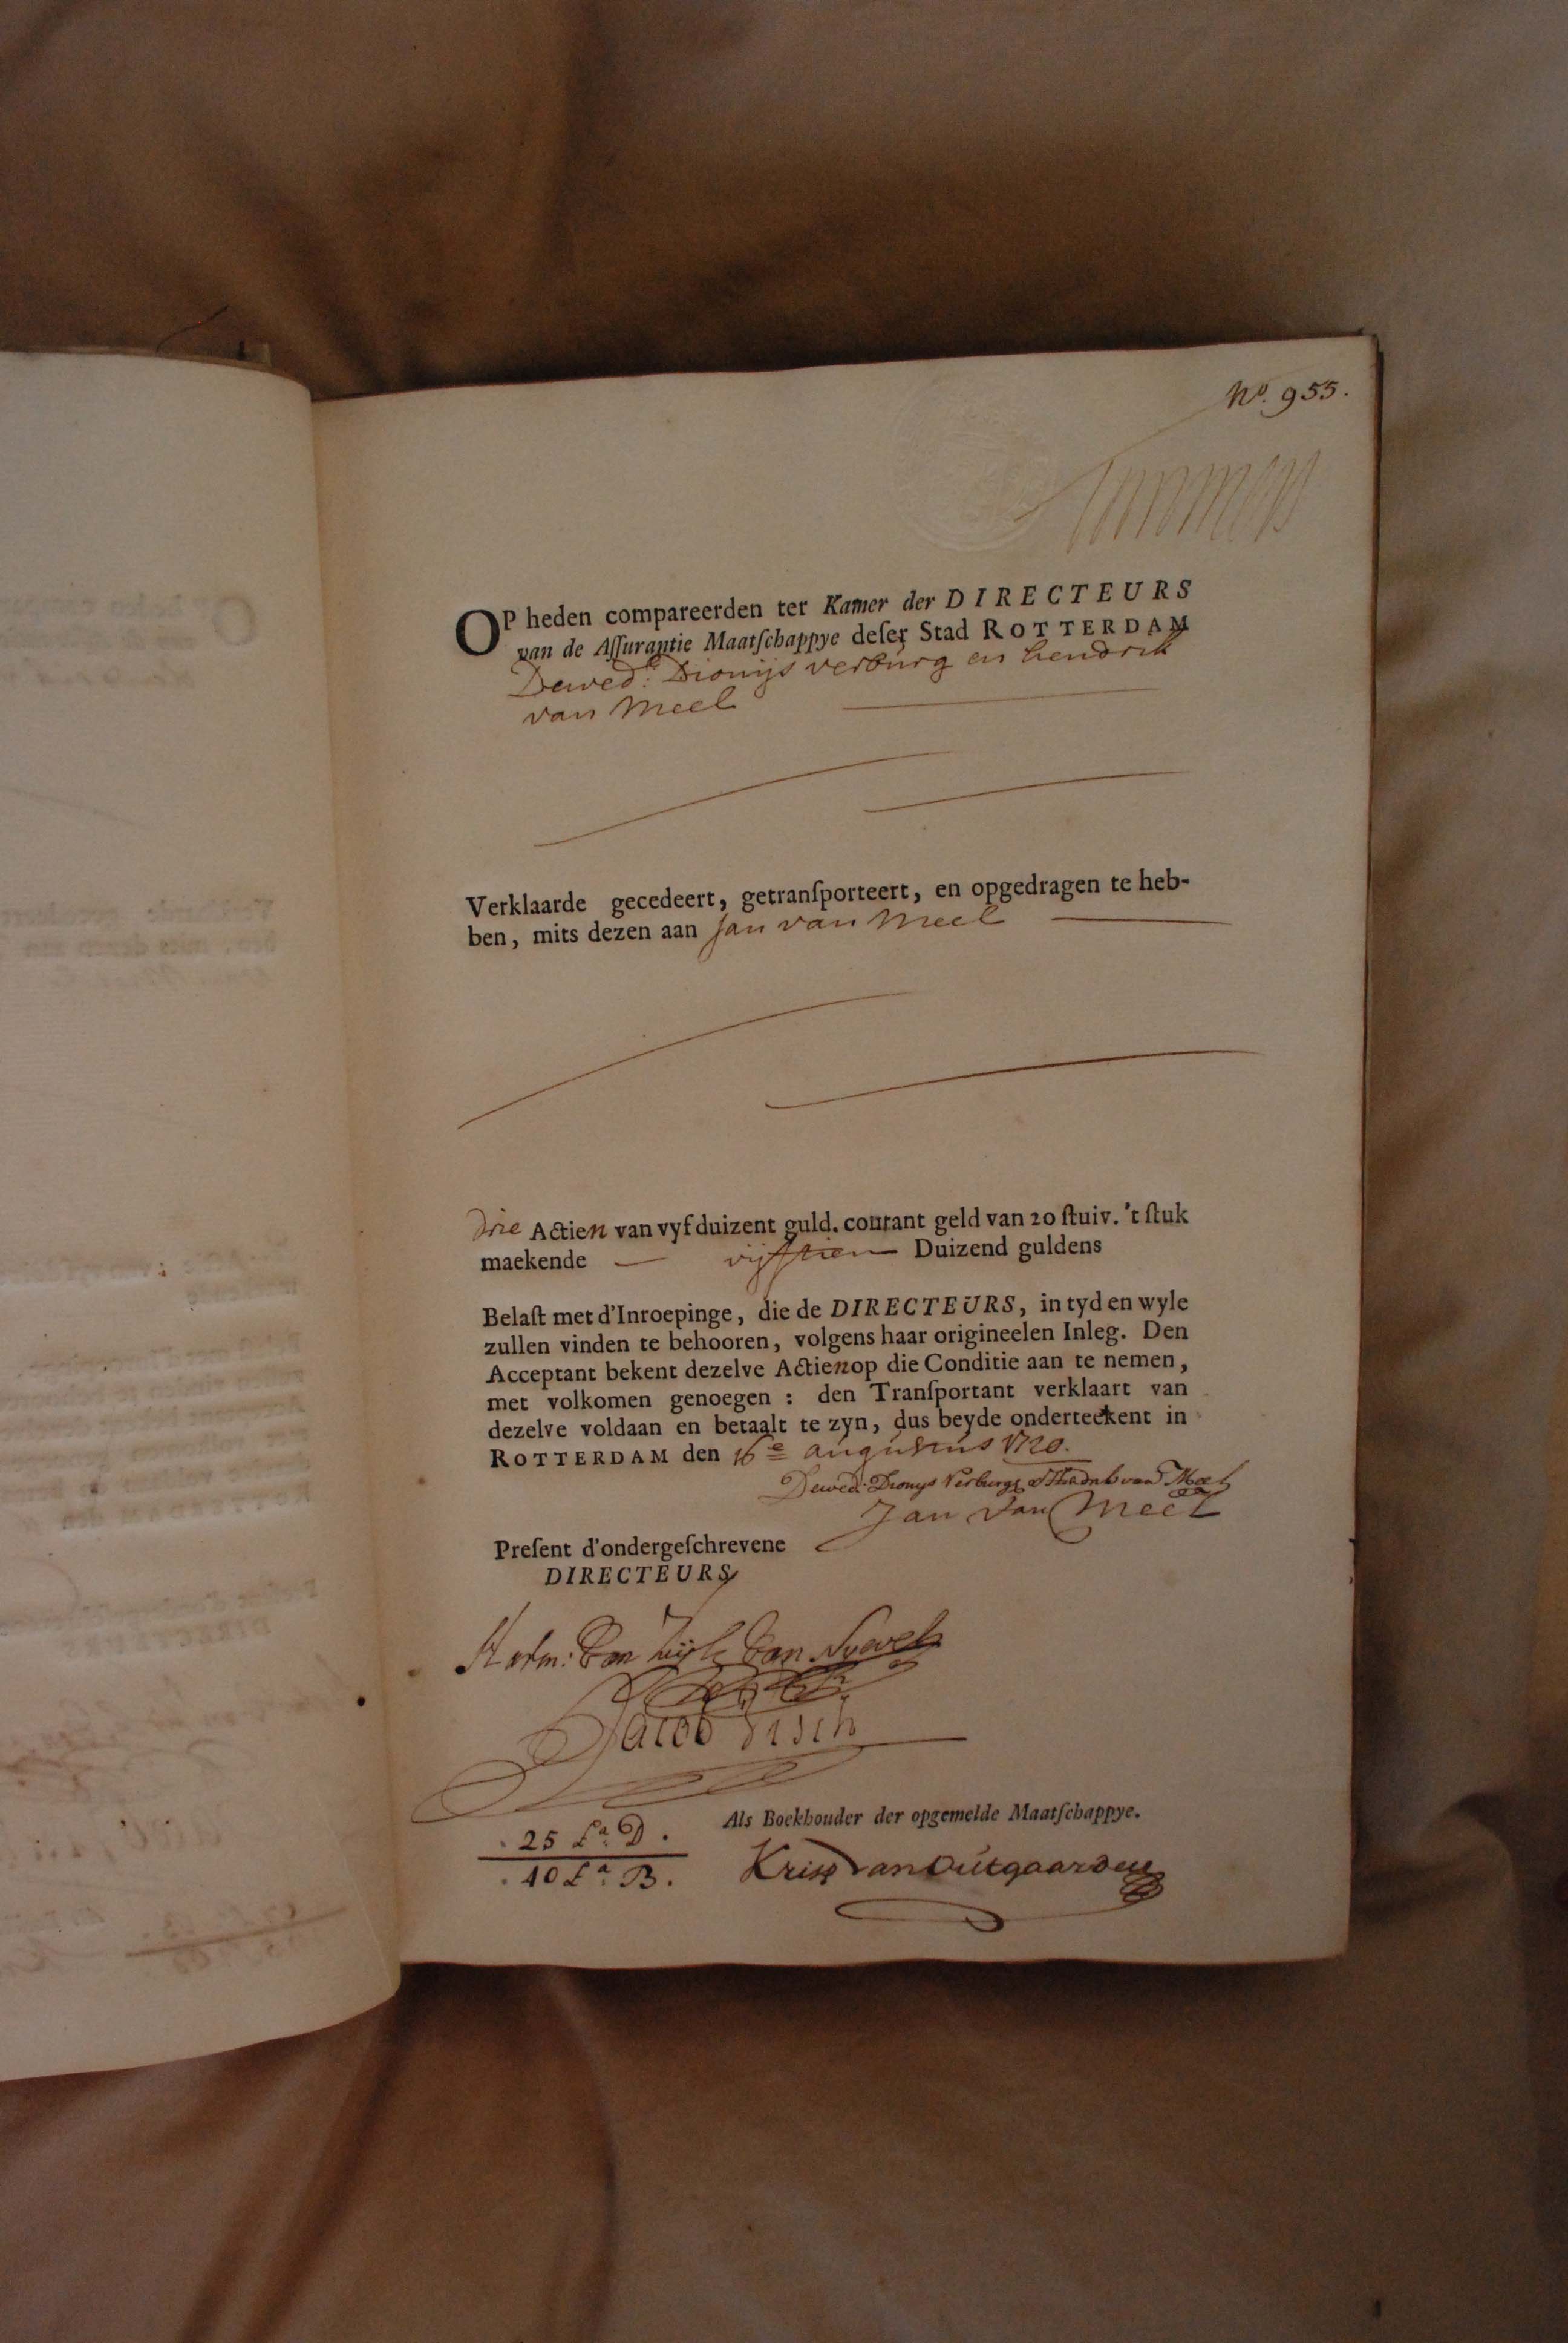 No. 955.
OP heden compareerden ter Kamer der DIRECTEURS
van de Aſſurantie Maatſchappye deſer Stad ROTTERDAM
Dewed:e Dionijs verburg en hendrik
van Meel
Verklaarde gecedeert, getranſporteert, en opgedragen te heb-
ben, mits dezen aan Jan van Meel
Drie Actien van vyf duizent guld. courant geld van 20 ſtuiv. 't ſtuk
maekende vijftien Duizend guldens
Belaſt met d'Inroepinge, die de DIRECTEURS, in tyd en wyle
zullen vinden te behooren, volgens haar origineelen Inleg. Den
Acceptant bekent dezelve Actien op die Conditie aan te nemen,
met volkomen genoegen : den Tranſportant verklaart van
dezelve voldaan en betaalt te zyn, dus beyde onderteekent in
ROTTERDAM den 16e augustus 1720.
Dewed: Dionys Verburg & Hendrik van Meel
Jan van Meel
Preſent d'ondergeſchrevene
DIRECTEURS
Harm: van Zijl van Nyevelt
Jacob Visch
Als Boekhouder der opgemelde Maatſchappye.
25 La D.
10 La B.
Kriss van Outgaarden